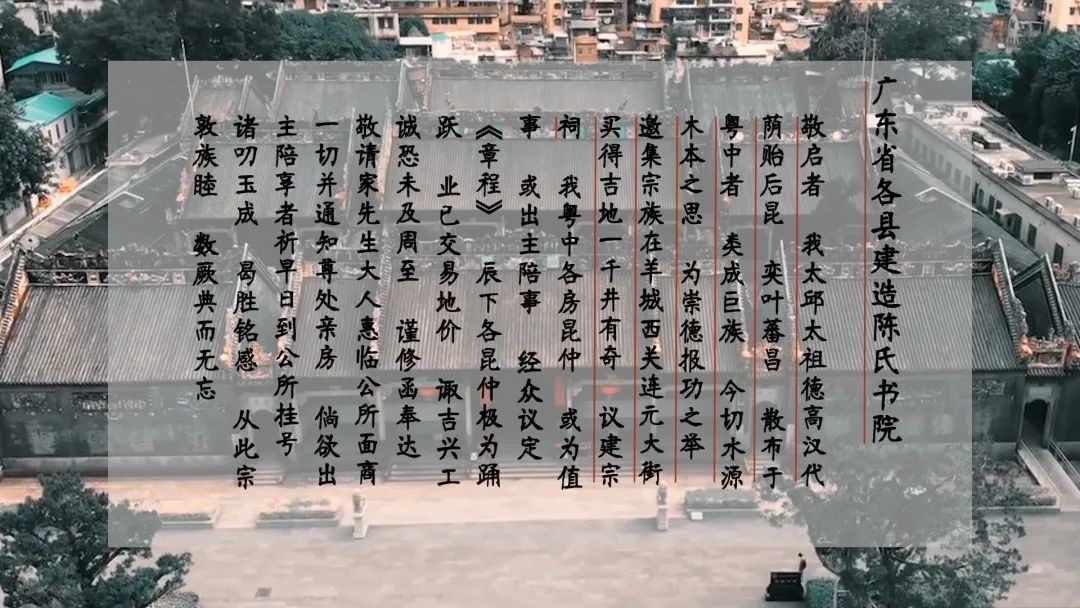 广东省各县建造陈氏书院
敬启者 我太邱太祖德高汉代
荫贻后昆 奕叶蕃昌 散布于
粤中者 类成巨族 今切水源
木本之思 为崇德报功之举
邀集宗族在羊城西关连元大街
买得吉地一千井有奇 议建宗
祠 我粤中各房昆仲 或为值
事 或出主陪事 经众议定
《章程》 辰下各昆仲极为踊
跃 业已交易地价 诹吉兴工
诚恐未及周至 谨修函奉达
敬请家先生大人惠临公所面商
一切并通知尊处亲房 倘欲出
主陪享者祈早日到公所挂号
诸叨玉成 曷胜铭感 从此宗
敦族睦 数厥典而无忘